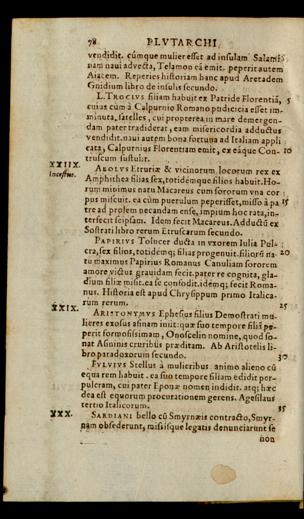 78 PLVTARCHI
vendidit. cúmque mulier esset ad insulam Salami-
nam naui aduecta, Telamon eá emit. peperit autem
Aiacem. Reperies historiam hanc apud Aretadem
Gnidium libro de insulis secundo.
L. TROCIVS filiam habuit ex Patride Florentiā, 5
cuius cùm à Calpurnio Romano pudicicia esset im-
minuta, satelles, cui propterea in mare demergen-
dam pater tradiderat, eam misericordia adductus
vendidit. naui autem bona fortuna ad Italiam appli
cata, Calpurnius Florentiam emit, ex eáque Con- 10
truscum sustulit.
XXIIX. AEOLVS Etruriæ & vicinorum locorum rex ex
Incestus. Amphithea filias sex, totidemque filios habuit. Ho-
rum minimus natu Macareus cum sororum vna cor
pus miscuit. ea cùm puerulum peperisset, misso à pa 15
tre ad prolem necandam ense, impium hoc rata, in-
terfecit seipsam. Idem fecit Macareus. Adductũ ex
Sostrati libro rerum Etruscarum secundo.
PAPIRIVS Tolucer ducta in vxorem Iulia Pul-
cra, sex filios, totidémq; filias progenuit. filiorũ na- 20
tu maximus Papirius Romanus Canuliam sororem
amore victus grauidam fecit. pater re cognita, gla-
dium filiæ misit. ea se confodit. idémq; fecit Roma-
nus. Historia est apud Chrysippum primo Italica-
rum rerum. 25
XXIX. ARISTONYMVS Ephesius filius Demostrati mu-
lieres exosus asinam iniit: quæ suo tempore filiã pe
perit formosissimam, Onoscelin nomine, quod so-
nat Asininis cruribus præditam. Ab Aristotelis li-
bro paradoxorum secundo. 30
FVLVIVS Stellus à mulieribus animo alieno cũ
equa rem habuit. ea suo tempore filiam edidit per-
pulcram, cui pater Eponæ nomen indidit. atq; hæc
dea est equorum procurationem gerens. Agesilaus
tertio Italicorum. 35
XXX. SARDIANI bello cũ Smyrnæis contracto, Smyr-
nam obsederunt, missisque legatis denunciarunt se
non